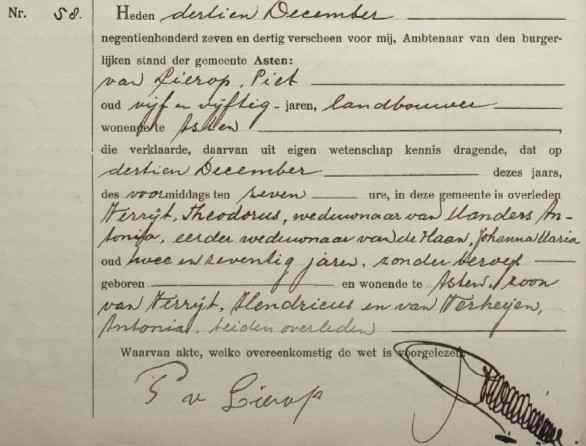 Nr. 58. Heden dertien December
negentienhonderd zeven en dertig verscheen voor mij, Ambtenaar van den burger-
lijken stand der gemeente Asten:
van Lierop, Piet
oud vijf en vijftig - jaren, landbouwer
wonende te Asten
die verklaarde, daarvan uit eigen wetenschap kennis dragende, dat op
dertien December dezes jaars,
des voormiddags ten zeven ure, in deze gemeente is overleden
Verrijt, Theodorus, weduwnaar van Manders An-
tonia, eerder weduwnaar van de Haan, Johanna Maria
oud twee en zeventig jaren, zonder beroep
geboren en wonende te Asten, zoon
van Verrijt, Hendricus en van Verheijen,
Antonia, beiden overleden
Waarvan akte, welke overeenkomstig de wet is voorgelezen.
P v Lierop